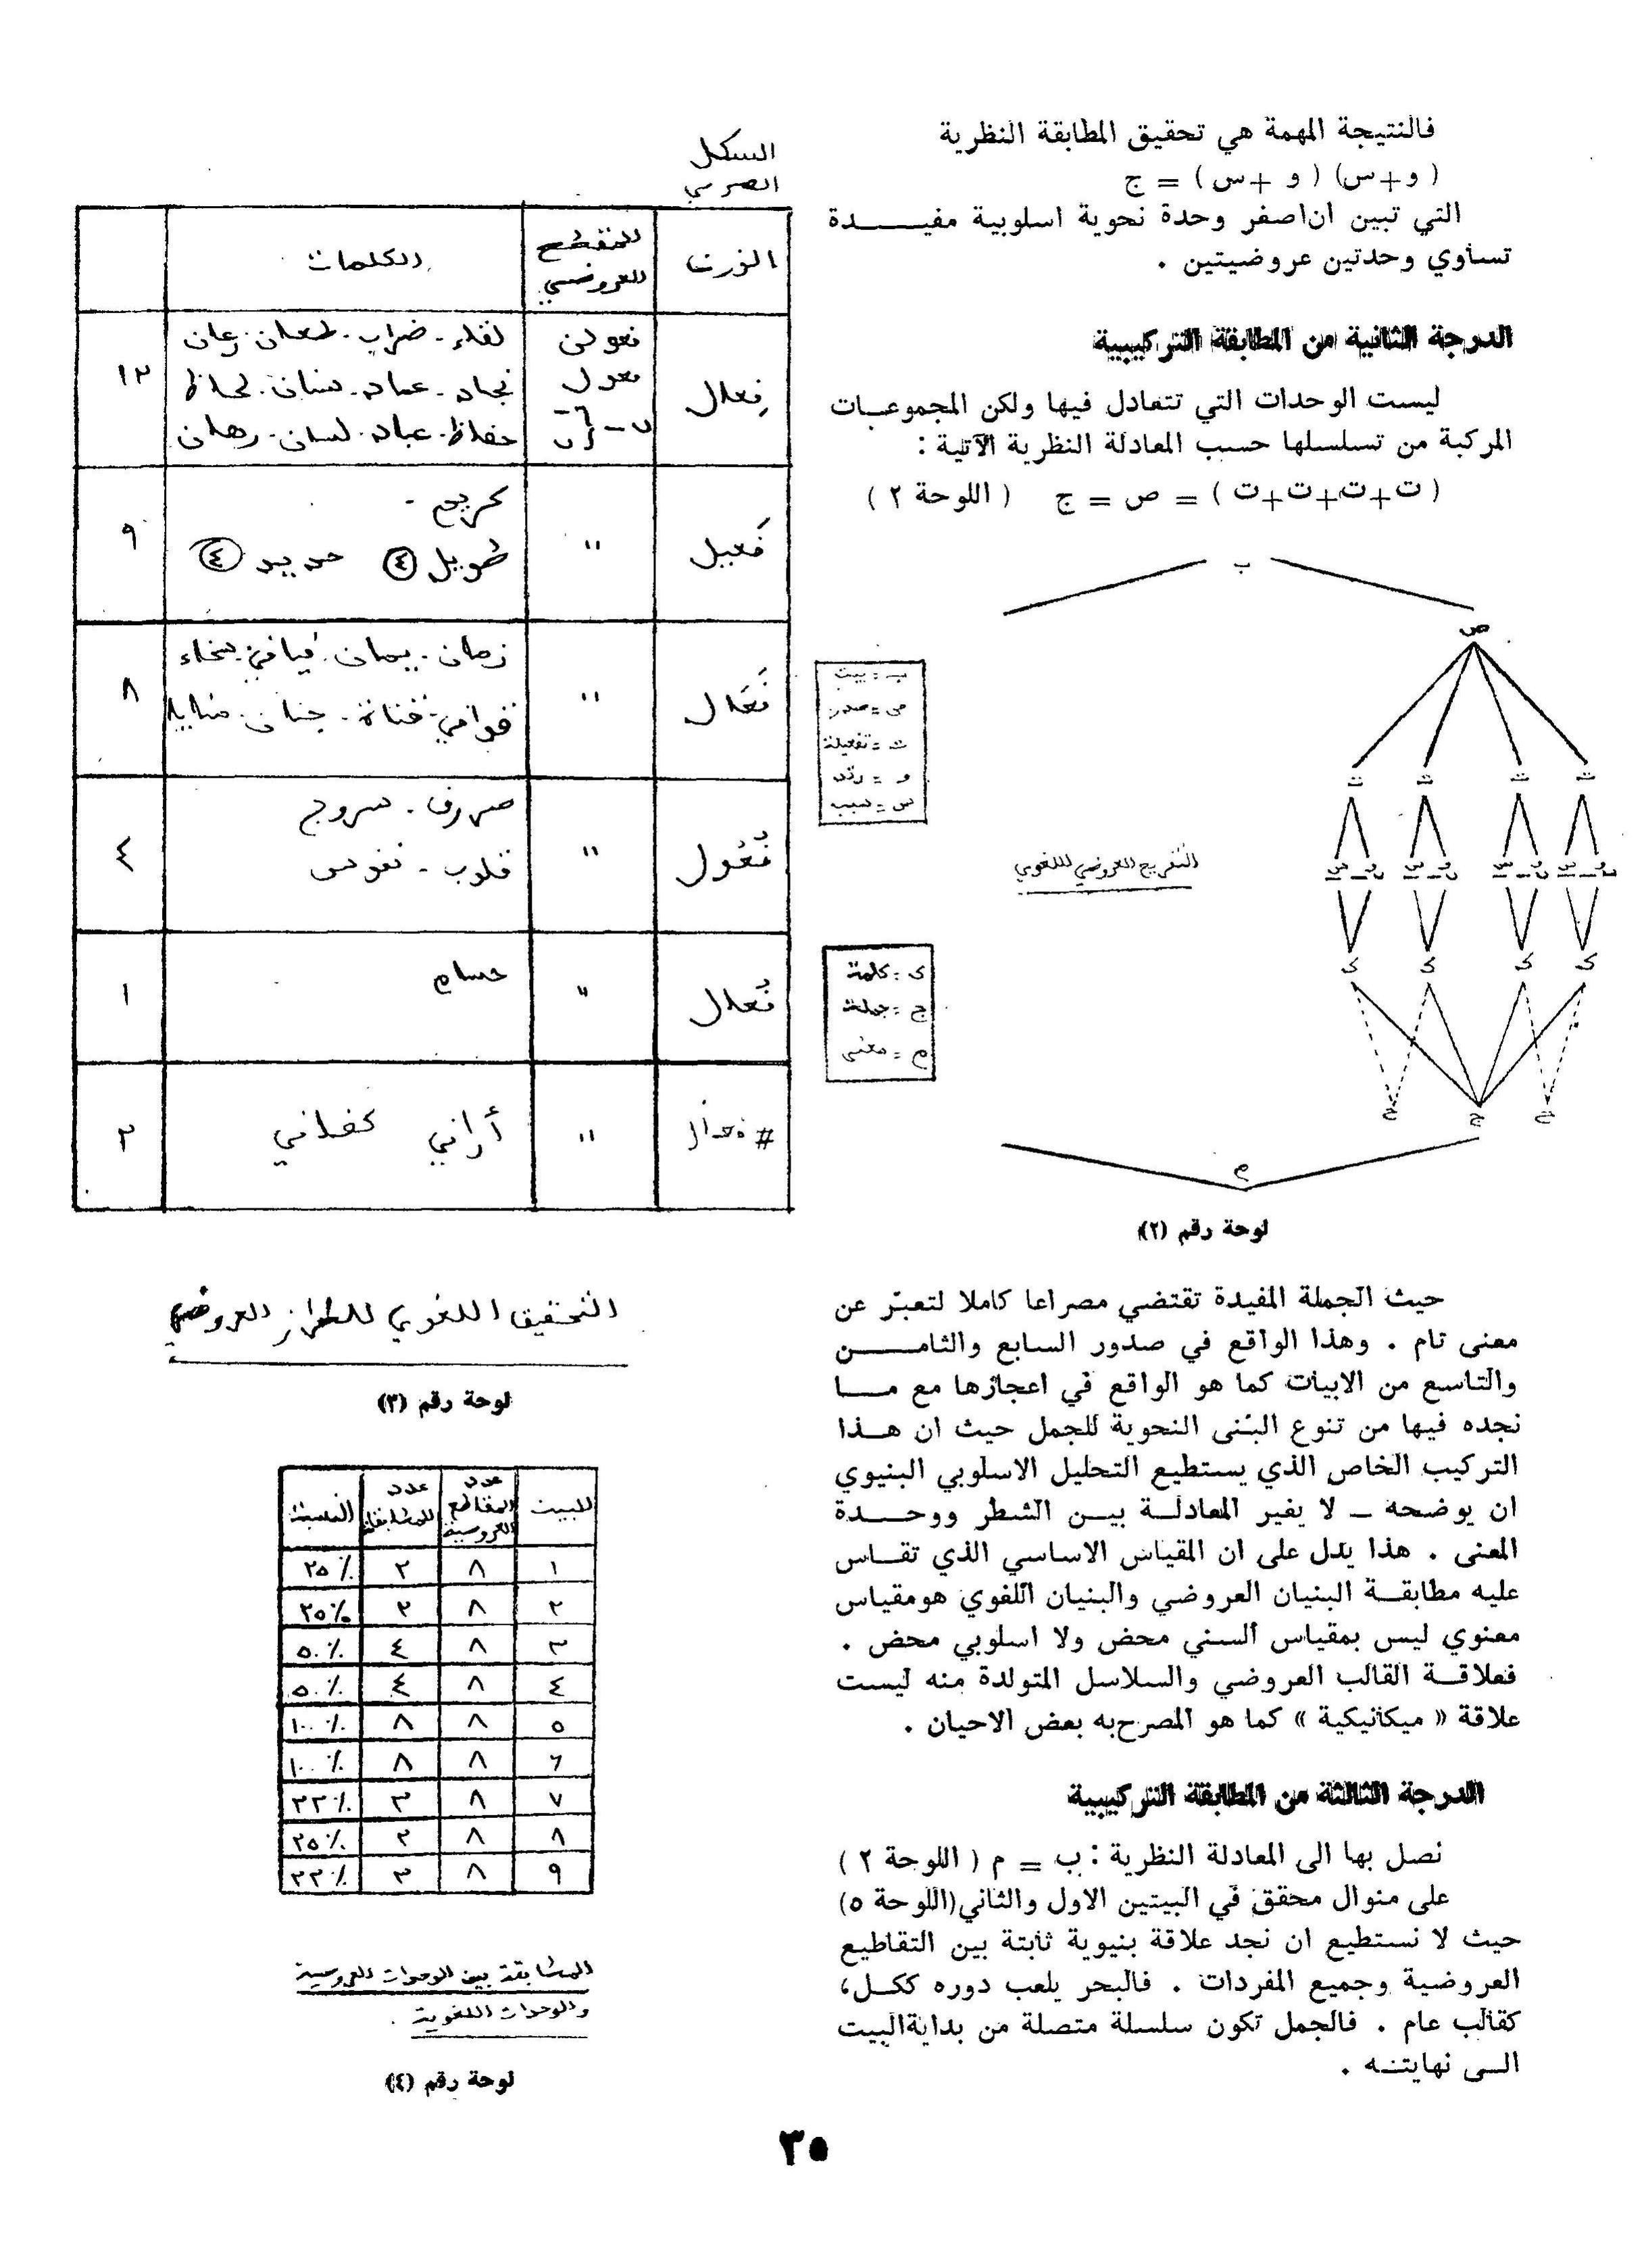 فالنتيجة المهمة هي تحقيق المطابقة النظرية
( و+س) ( و +س ) = ج
التي تبين ان اصغر وحدة نحوية اسلوبية مفيدة
تساوي وحدتين عروضيتين .
الدرجة الثانية من المطابقة التركيبية
ليست الوحدات التي تتعادل فيها ولكن المجموعات
المركبة من تسلسلها حسب المعادلة النظرية الآتية :
( ت+ت+ت+ت ) = ص = ج ( اللوحة ٢ )
ب
ص
ب = بيت
ص = صدر
ت = تفعيلة
و = وتد
س = سبب
ت ت ت ت
التفريع العروضي اللغوي
و س و س و س و س
ك ك ك ك
ك = كلمة
ج = جملة
م = معنى
ج ج ج
م
لوحة رقم (٢)
حيث الجملة المفيدة تقتضي مصراعا كاملا لتعبّر عن
معنى تام . وهذا الواقع في صدور السابع والثامن
والتاسع من الابيات كما هو الواقع في اعجازها مع ما
نجده فيها من تنوع البُنى النحوية للجمل حيث ان هذا
التركيب الخاص الذي يستطيع التحليل الاسلوبي البنيوي
ان يوضحه ــ لا يغير المعادلة بين الشطر ووحدة
المعنى . هذا يدل على ان المقياس الاساسي الذي تقاس
عليه مطابقة البنيان العروضي والبنيان اللغوي هو مقياس
معنوي ليس بمقياس ألسني محض ولا اسلوبي محض .
فعلاقة القالب العروضي والسلاسل المتولدة منه ليست
علاقة « ميكانيكية » كما هو المصرح به بعض الاحيان .
الدرجة الثالثة من المطابقة التركيبية
نصل بها الى المعادلة النظرية : ب = م ( اللوحة ٢ )
على منوال محقق في البيتين الاول والثاني (اللوحة ٥)
حيث لا نستطيع ان نجد علاقة بنيوية ثابتة بين التقاطيع
العروضية وجميع المفردات . فالبحر يلعب دوره ككل،
كقالب عام . فالجمل تكون سلسلة متصلة من بداية البيت
الى نهايته .
الشكل
الصرفي
الوزن التقطيع العروضي الكلمات
فِعال فعولن فعول لقاء - ضراب - طعان - رعان
نجاد - عماد - سنان - لحاظ
حفاظ - عباد - لسان - رهان ١٢
فَعيل " كريم -
طويل ④ حديد ④ ٩
فَعَال " زمان - يمان - فيافي - سخاء
قوافي - قناة - جنان - منايا ٨
فُعُول " صروف - سروج
قلوب - نفوس ٤
فُعال " حسام ١
# فعال " أراني كفاني ٢
التحقيق اللغوي للطراز العروضي
لوحة رقم (٣)
البيت عدد المقاطع العروضية عدد المطابقة النسبة
١ ٨ ٢ ٢٥٪
٢ ٨ ٢ ٢٥٪
٣ ٨ ٤ ٥٠٪
٤ ٨ ٤ ٥٠٪
٥ ٨ ٨ ١٠٠٪
٦ ٨ ٨ ١٠٠٪
٧ ٨ ٣ ٣٣٪
٨ ٨ ٢ ٢٥٪
٩ ٨ ٣ ٣٣٪
المطابقة بين الوحدات العروضية
والوحدات اللغوية .
لوحة رقم (٤)
٣٥